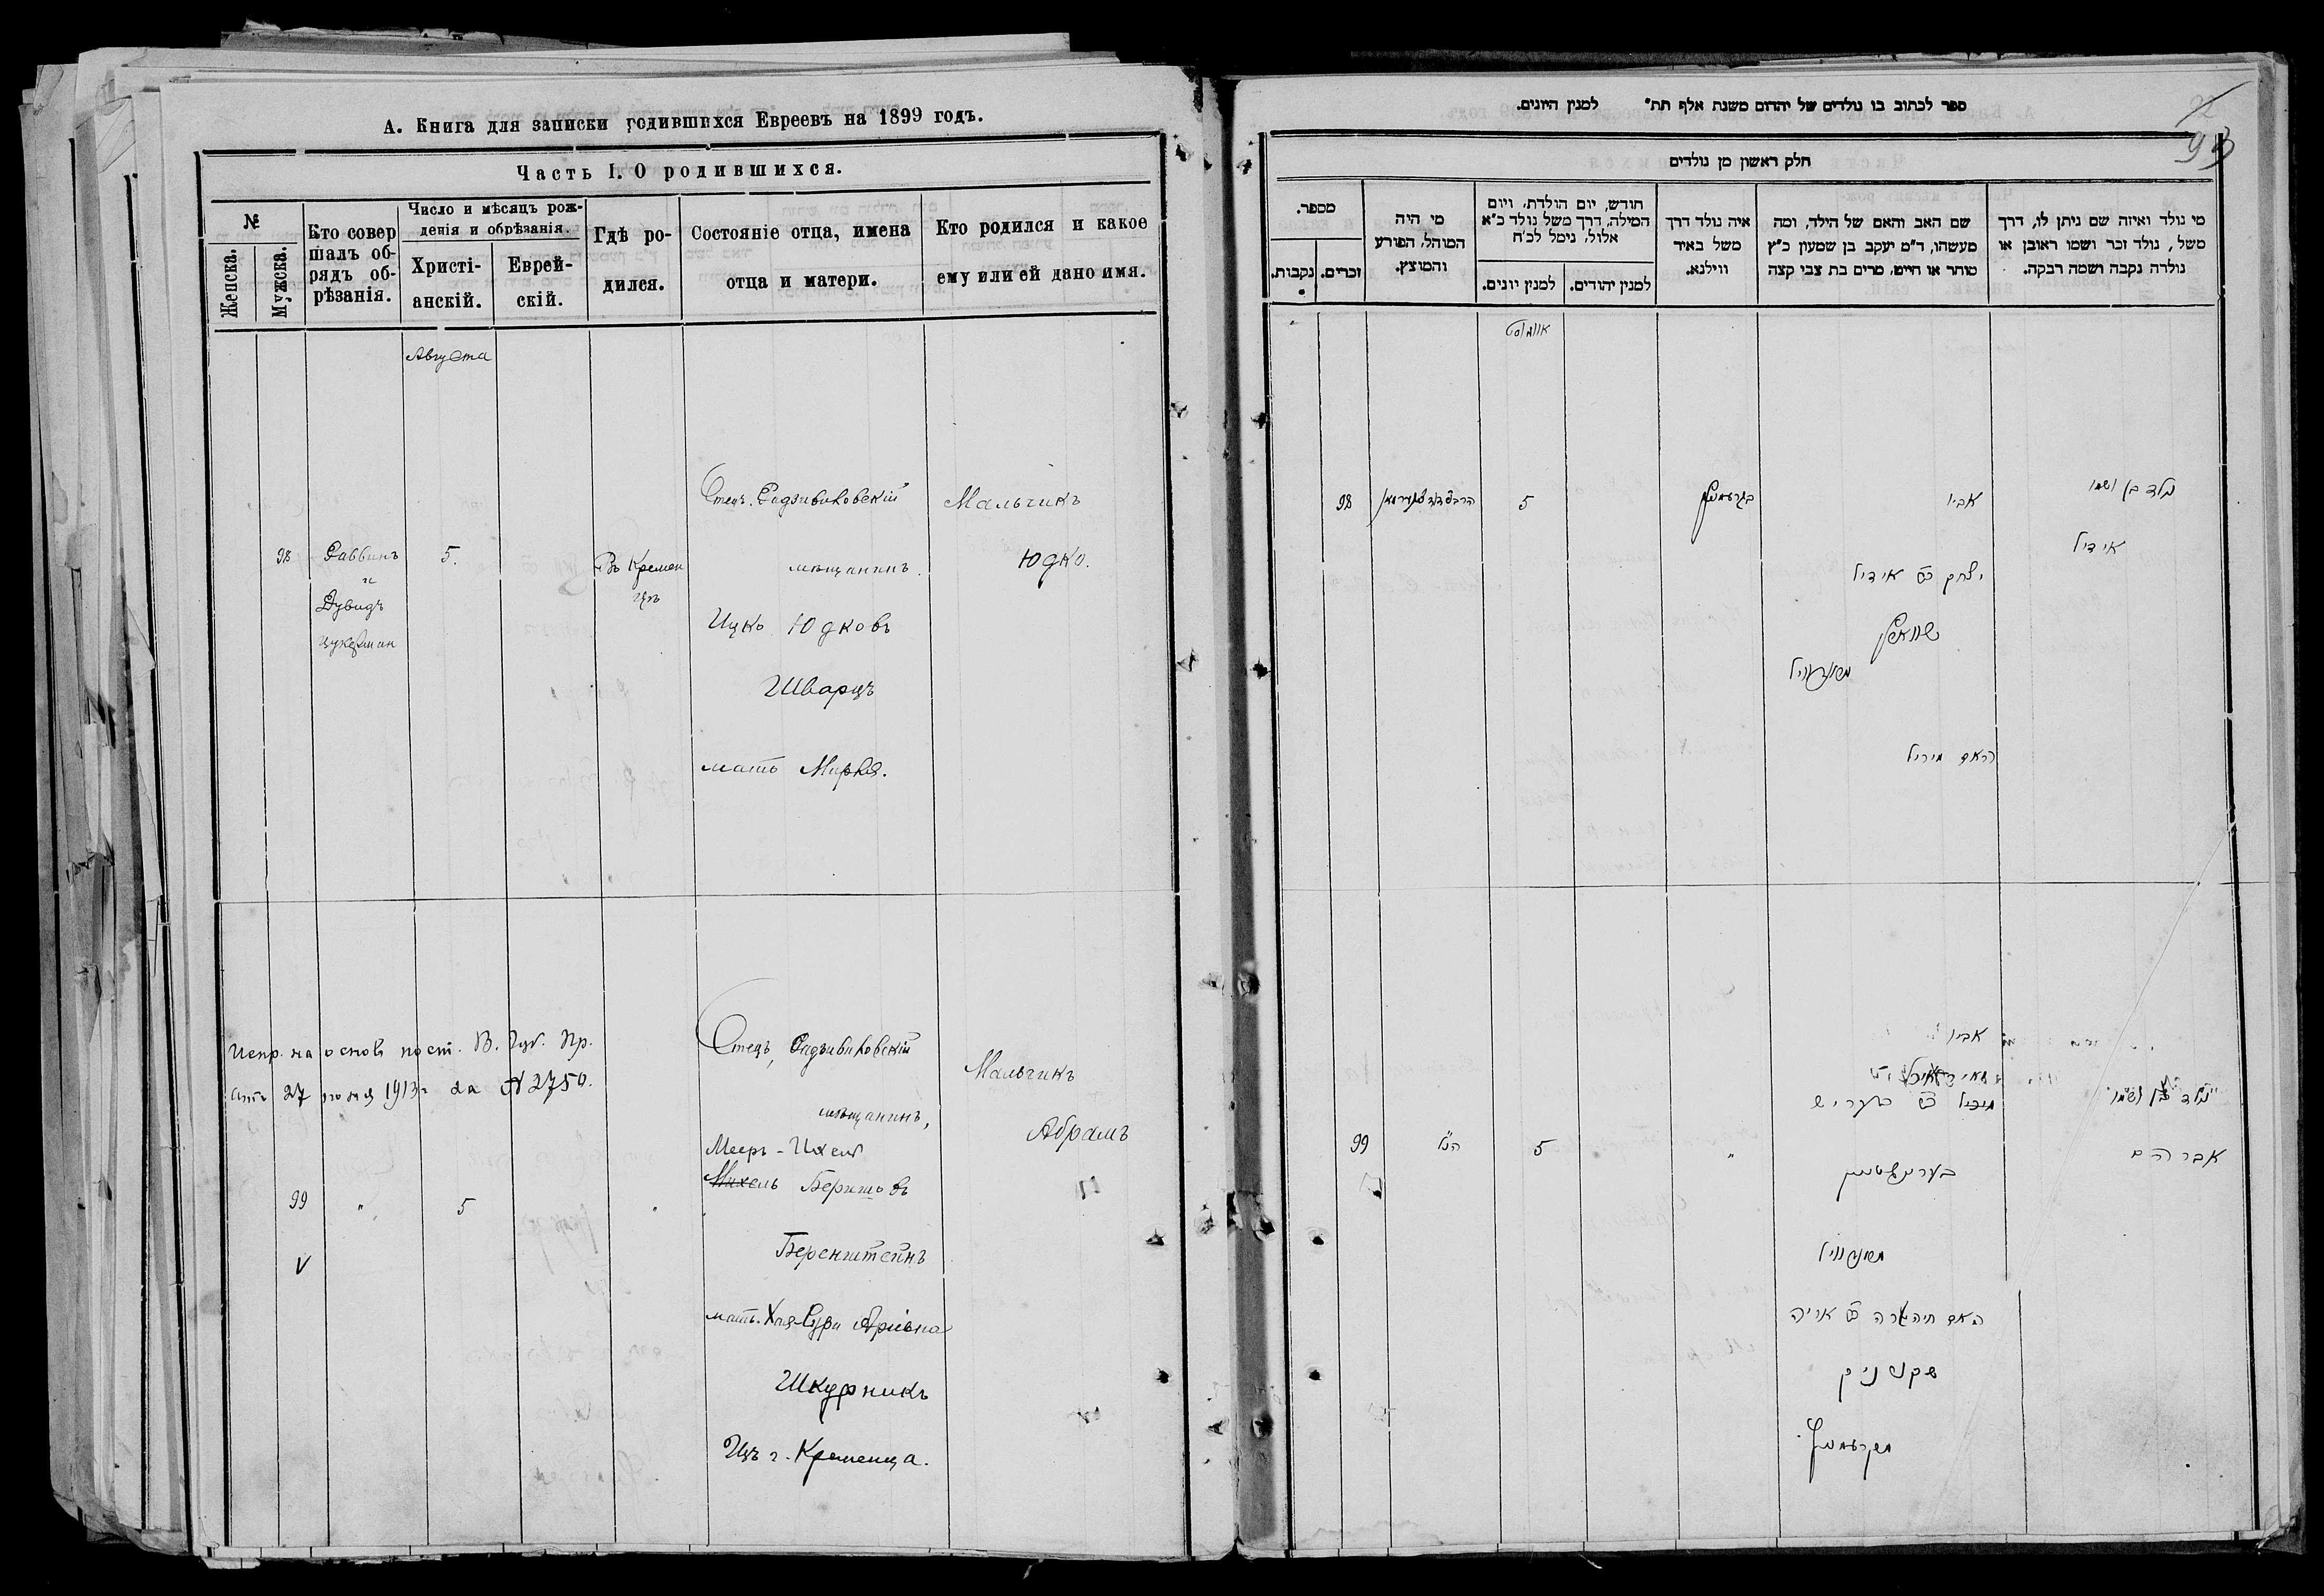 А. Книга для записки родившихся Евреевъ на 1899 годъ.
Часть I. О родившихся.
№
Женска.
Мужска.
Кто совер
шалъ об-
рядъ об-
рѣзанія.
Число и мѣсяцъ рож-
денія и обрѣзанія.
Христі-
анскій.
Еврей-
скій.
Гдѣ ро-
дился.
Состояніе отца, имена
отца и матери.
Кто родился и какое
ему или ей дано имя.
Августа
98
Раввинъ
и
Дувидъ
Цукерман
5.
Въ Кремен
цѣ
Отецъ. Радзивиловскій
мѣщанинъ.
Ицко Юдковъ
Шварцъ
мать Мирля.
Мальчикъ
Юдко.
Испр. на основ. пост. В. Губ. Пр.
отъ 27 1913 г за № 2750.
99
V
"
5
"
Отецъ, Радзивиловскій
мѣщанинъ,
Мееръ-Ихель
Михель Беришовъ
Беренштейнъ
мать. Хая-Сура Аріевна
Шкурникъ
Изъ г. Кременца.
Мальчикъ
Абрамъ
ספר לכתוב בו נולדים של יהדום משנת אלף תת" למנין היונים.
93
חלק ראשון מן נולדים
מי נולד ואיזה שם ניתן לו, דרך
משל, נולד זכר ושמו ראובן או
נולדה נקבה ושמה רבקה.
שם האב והאם של הילד, ומה
מעשהו, ד"מ יעקב בן שמעון כ"ץ
סוחר או חייט, מרים בת צבי קצה
איה נולד דרך
משל באיד
ווילנא.
חודש, יום הולדת, ויום
המילה, דרך משל נולד כ"א
אלול, נימל לכ"ח
למנין יהודים.
למנין יונים.
מי היה
המוהל, הפורע
והמוצץ.
מספר.
זכרים.
נקבות.
אוגוסט
נולד בן ושמו
אידיל
אביו
יצחק ב"ר אידיל
שווארץ
האם מירל
בקרעמניץ
5
98
נולד בן ושמו
אברהם
אביו
מיכל ב"ר בעריש
בערינשטיין
האם חיה שרה ב"ר אריה
שקורניק
מקרעמניץ
"
5
הנ"ל
99